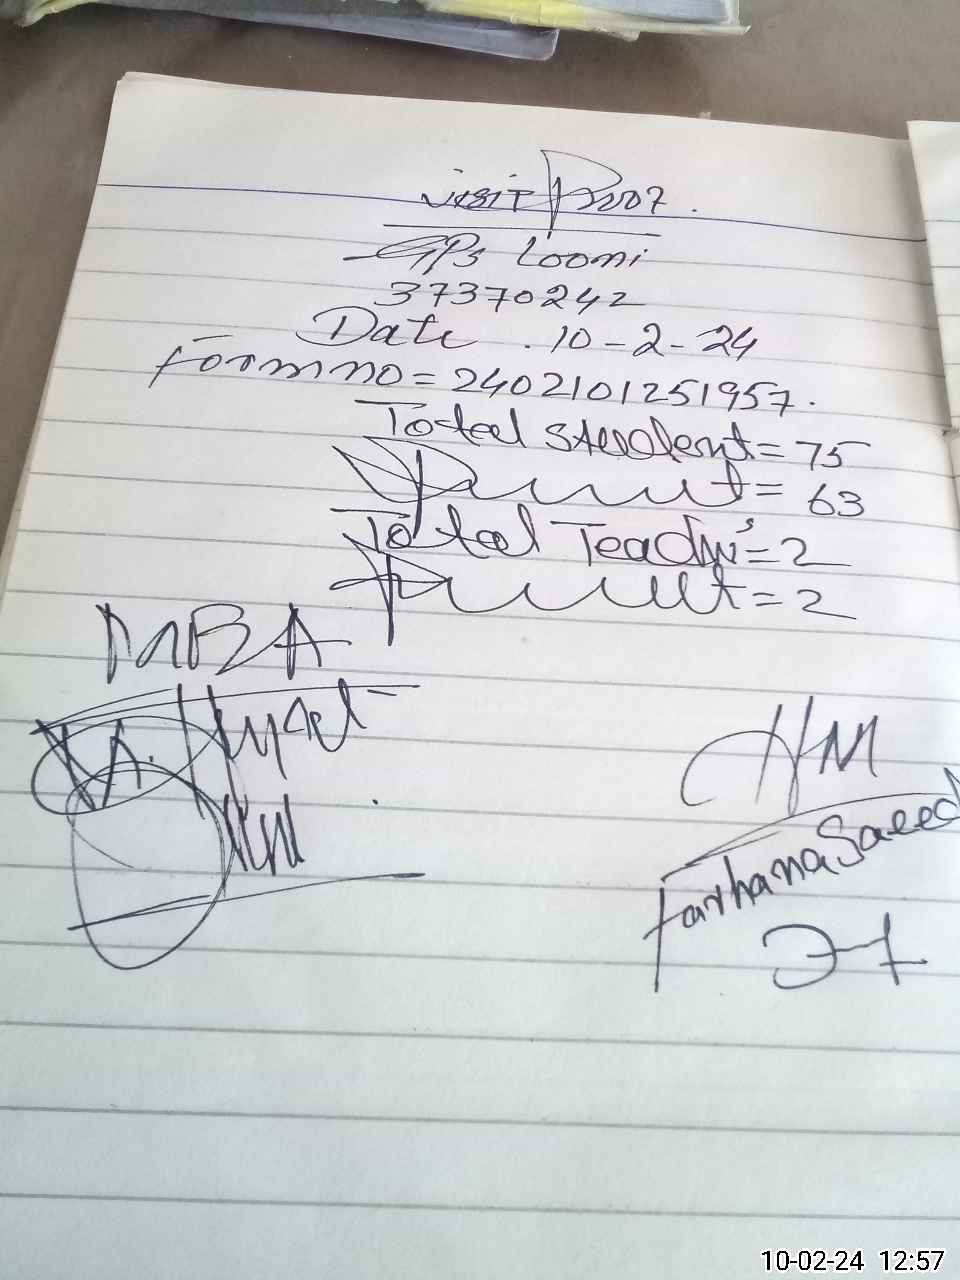 visit Proof.
GPS Looni
37370242
Date . 10-2-24
Form no = 2402101251957.
Total student = 75
Present = 63
Total Teacher's = 2
Present = 2
MBA
HM
Farhana Saeed
10-02-24 12:57